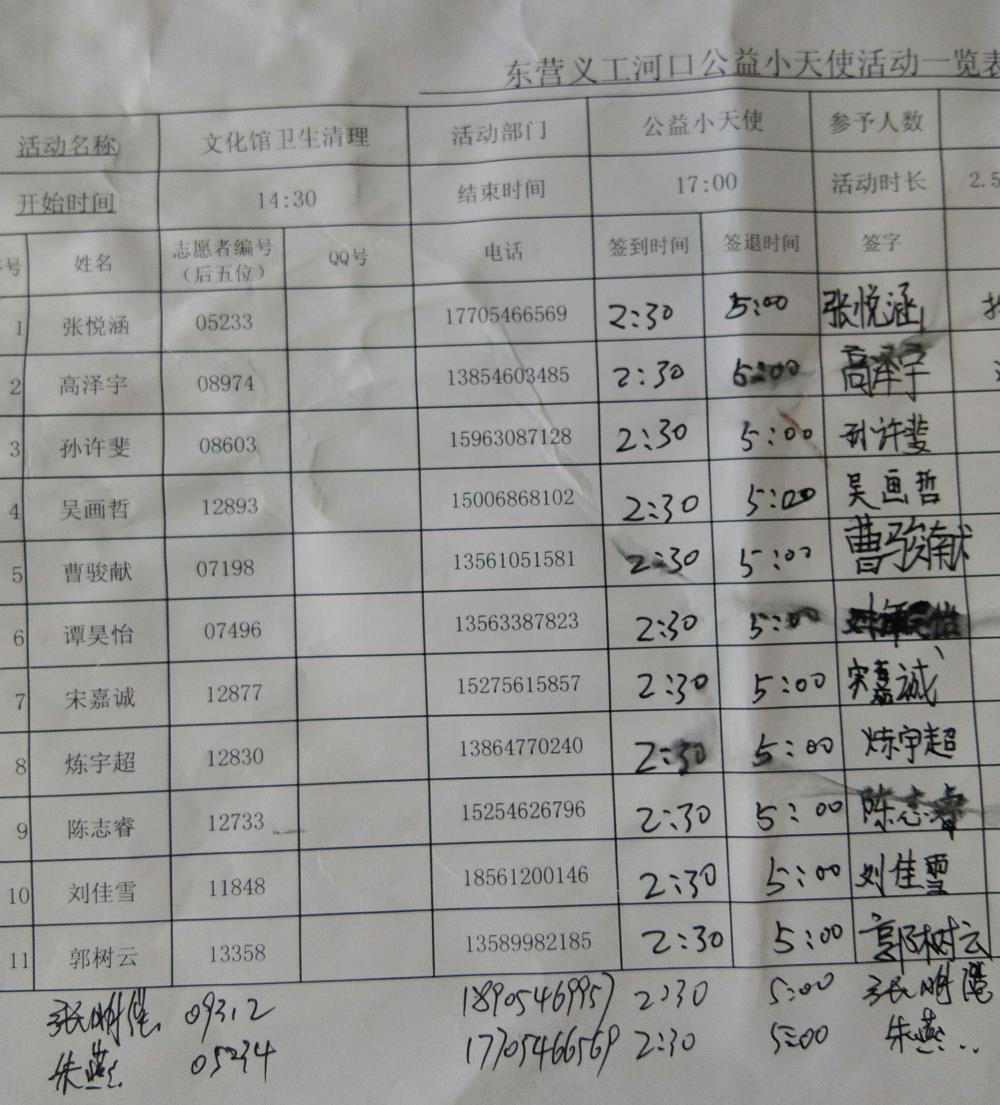 东营义工河口公益小天使活动一览表
活动名称 文化馆卫生清理 活动部门 公益小天使 参予人数
开始时间 14:30 结束时间 17:00 活动时长 2.5
号 姓名 志愿者编号（后五位） QQ号 电话 签到时间 签退时间 签字
1 张悦涵 05233 17705466569 2:30 5:00 张悦涵
2 高泽宇 08974 13854603485 2:30 5:00 高泽宇
3 孙许斐 08603 15963087128 2:30 5:00 孙许斐
4 吴画哲 12893 15006868102 2:30 5:00 吴画哲
5 曹骏献 07198 13561051581 2:30 5:00 曹骏献
6 谭昊怡 07496 13563387823 2:30 5:00 怡
7 宋嘉诚 12877 15275615857 2:30 5:00 宋嘉诚
8 炼宇超 12830 13864770240 2:30 5:00 炼宇超
9 陈志睿 12733 15254626796 2:30 5:00 陈志睿
10 刘佳雪 11848 18561200146 2:30 5:00 刘佳雪
11 郭树云 13358 13589982185 2:30 5:00 郭树云
09312 18905469957 2:30 5:00
朱燕 05234 17705466569 2:30 5:00 朱燕